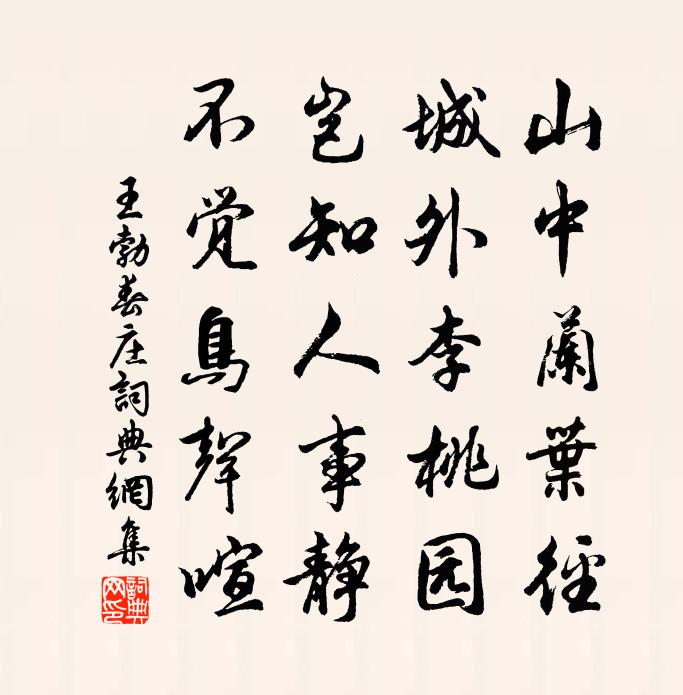 山中蘭葉徑
城外李桃园
岂知人事静
不觉鳥聲喧
王勃春庄詞典網集
詞典网印